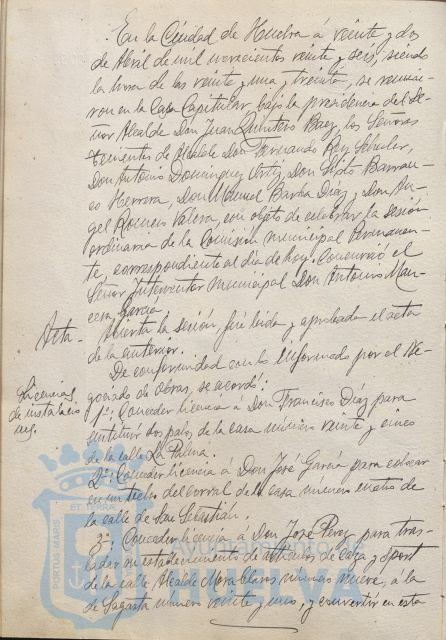 En la Ciudad de Huelva á veinte y dos
de Abril de mil novecientos veinte y seis, siendo
la hora de las veinte y una y treinta, se reunie-
ron en la Casa Capitular, bajo la presidencia del Se-
ñor Alcalde Don Juan Quintero Baez, los Señores
tenientes de Alcalde Don Fernando Rey
Don Antonio Dominguez Ortiz, Don Sixto Barran-
co Herrera, Don Manuel Barba Diaz, y Don An-
gel Romero Valera, con objeto de celebrar la sesión
ordinaria de la Comisión municipal Permanen-
te, correspondiente al día de hoy. Concurrió el
Señor Interventor municipal Don Antonio
Garcia.
Acta.- Abierta la sesión, fué leida y aprobada el acta
de la anterior.
Licencias
de instalacio
nes.
De conformidad con lo informado por el Ne-
gociado de obras, se acordó:
1º: Conceder licencia á Don Francisco Díaz para
sustituir dos palos de la casa número veinte y cinco
de la calle La Palma.
2º: Conceder licencia á Don José García para colocar
en un techo del corral de la casa número cuatro de
la calle de San Sebastián.
3º: Conceder licencia á Don José Perez para tras-
ladar su establecimiento de artículos de Caza y Sport
de la calle Alcalde Mora Claros número nueve, á la
de Sagasta número veinte y uno, y convertir en esta
PORTUS MARIS
ET TERRAE
Ayuntamiento de
HUELVA